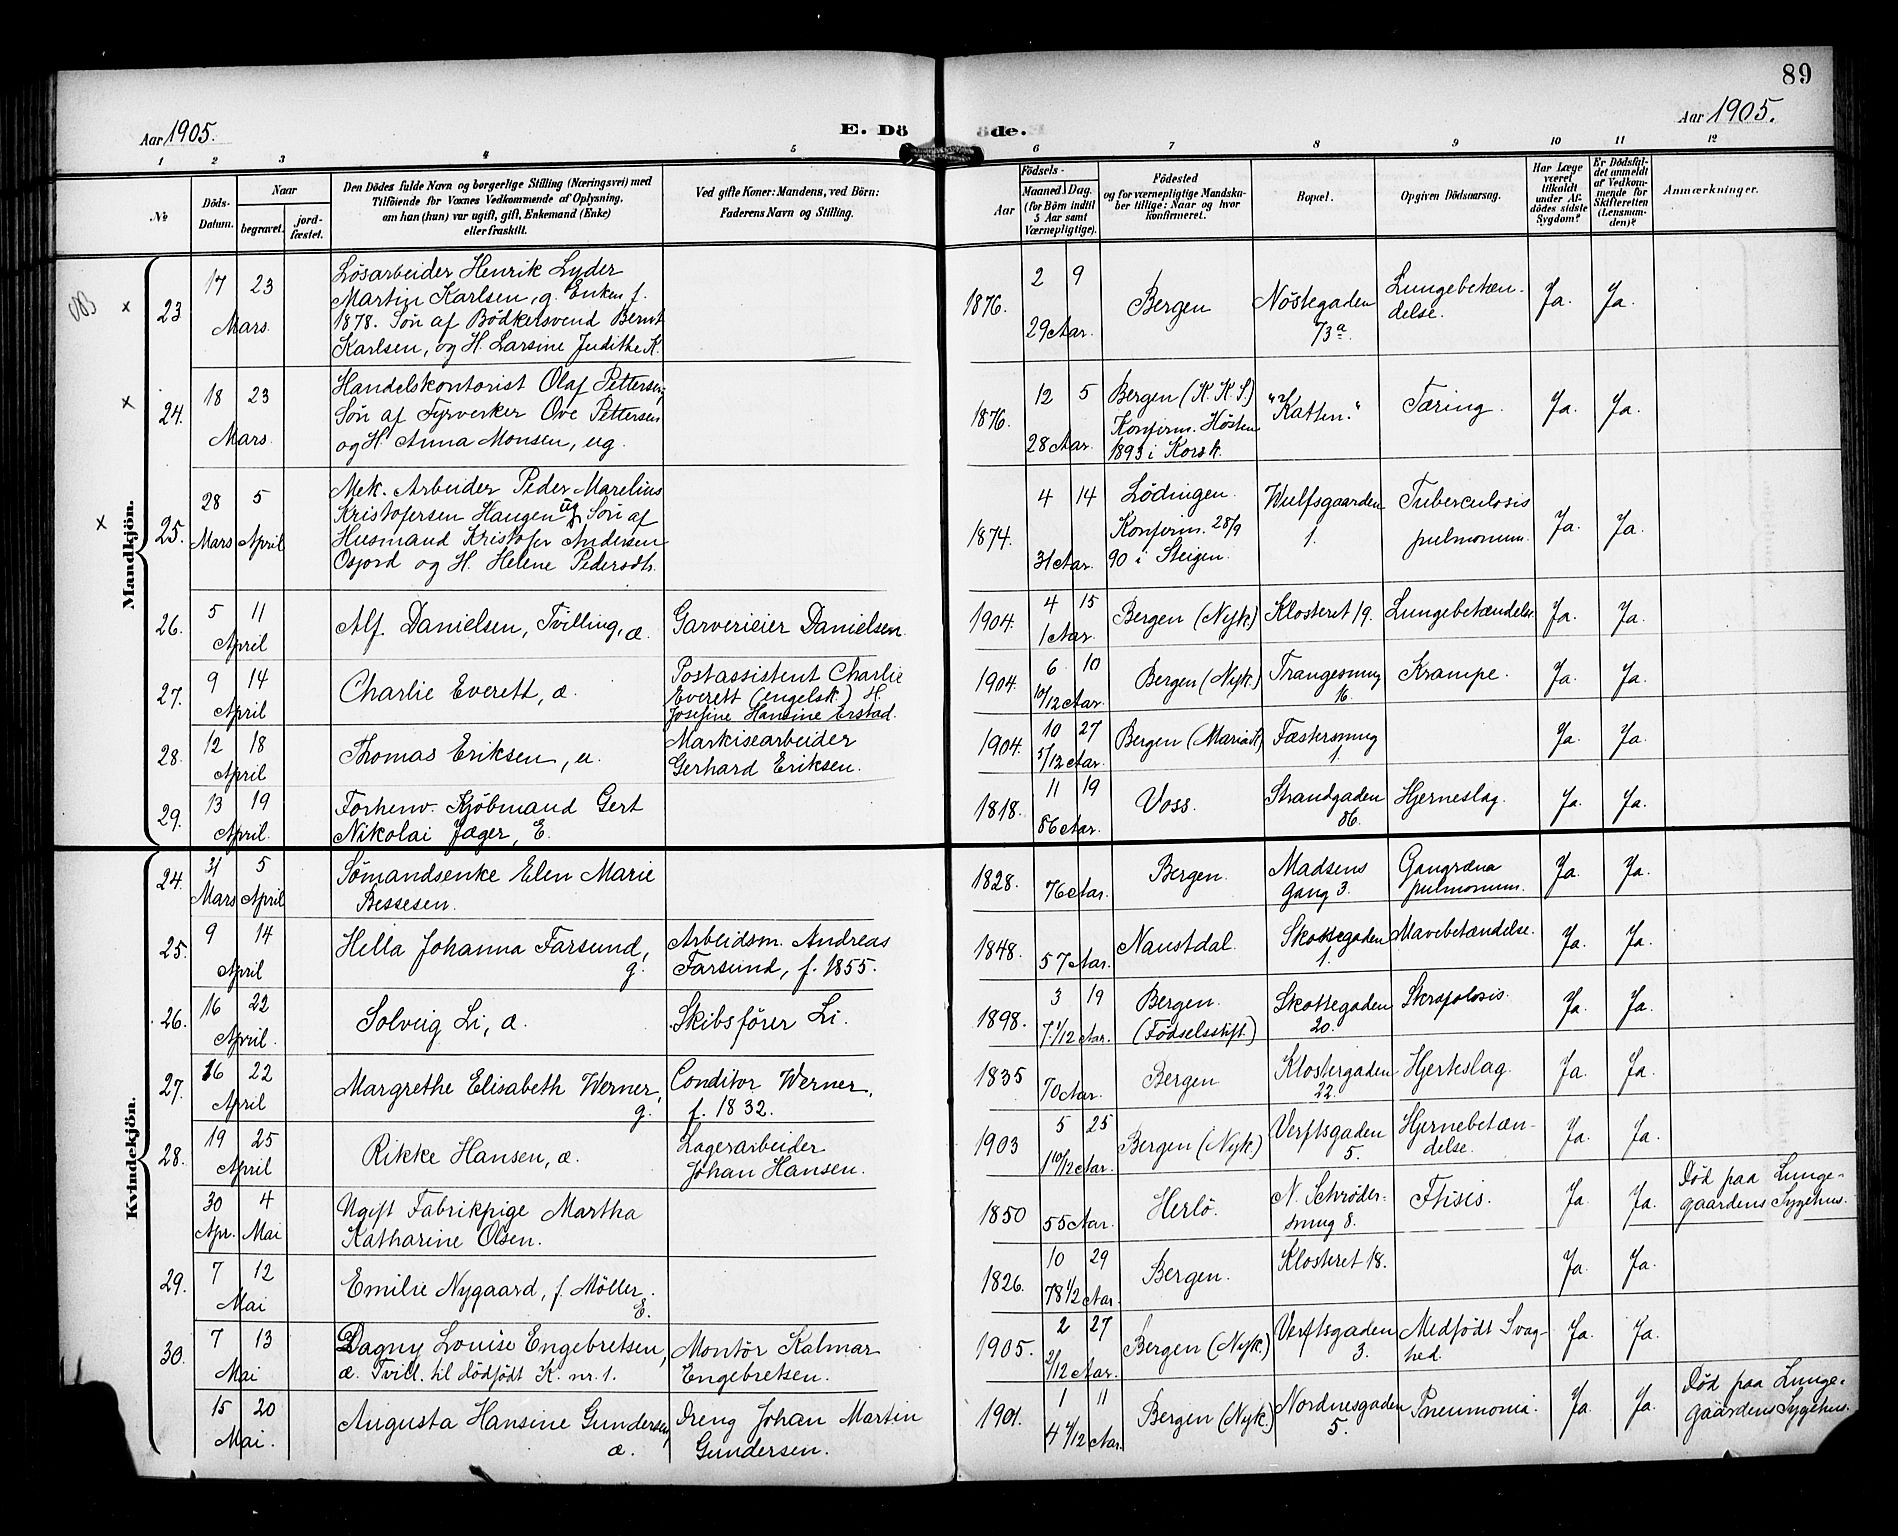 89
Aar 1905.
E. Dö
de.
Aar 1905.
1 2 3 4 5 6 7 8 9 10 11 12
№
Döds-
Datum.
Naar
begravet.
jord-
fæstet.
Den Dödes fulde Navn og borgerlige Stilling (Næringsvei) med
Tilföiende for Voxnes Vedkommende af Oplysning,
om han (hun) var ugift, gift, Enkemand (Enke)
eller fraskilt.
Ved gifte Koner: Mandens, ved Börn:
Faderens Navn og Stilling.
Aar
Födsels-
Maaned. Dag.
(for Börn indtil
5 Aar samt
Værnepligtige).
Födested
og for værnepligtige Mandska-
ber tillige: Naar og hvor
konfirmeret.
Bopæl.
Opgiven Dödsaarsag.
Har Læge
været
tilkaldt
under Af-
dödes sidste
Sygdom?
Er Dödsfal-
det anmeldt
af Vedkom-
mende for
Skifteretten
(Lensman-
den)?
Anmærkninger.
Mandkjön.
x 23
17 23
Mars
Løsarbeider Henrik Lyder
Martin Karlsen, g. Enken f.
1878. Søn af Bødkersvend Bernt
Karlsen, og H. Larsine Judithe K.
1876.
2 9
29 Aar.
Bergen
Nöstegaden
73a.
Lungebetæn-
delse.
Ja. Ja.
x 24.
18 23
Mars
Handelskontorist Olaf Pettersen,
Søn af Fyrverker Ove Pettersen
og H. Anna Monsen, ug.
1876.
12 5
28 Aar.
Bergen (K. K. S.)
Konfirm. Høsten
1893 i Korsk.
"Katten."
Tæring.
Ja. Ja.
x 25.
28 5
Mars April
Mek. Arbeider Peder Marelius
Kristofersen Haugen ug, Søn af
Husmand Kristofer Andersen
Osjord og H. Helene Pedersdtr.
1874.
4 14
31 Aar.
Lødingen.
Konfirm. 28/9
90 i Steigen.
Wulfsgaarden
1.
Tuberculosis
pulmonum.
Ja. Ja.
26.
5 11
April
Alf Danielsen, Tvilling, æ.
Garverieier Danielsen.
1904.
4 15
1 Aar.
Bergen (Nyk.)
Klosteret 19.
Lungebetændelse.
Ja. Ja.
27.
9 14
April
Charlie Everett, æ.
Postassistent Charlie
Everett (engelsk) H.
Josefine Hansine Erstad.
1904.
6 10
10/12 Aar.
Bergen (Nyk.)
Trangesmug
16.
Krampe.
Ja. Ja.
28.
12 18
April
Thomas Eriksen, u.
Markisearbeider
Gerhard Eriksen.
1904.
10 27
5/12 Aar.
Bergen (Mariæk.)
Fæstersmug
1.
Ja. Ja.
29.
13 19
April.
Forhenv. Kjøbmand Gert
Nikolai Jæger, E.
1818.
11 19
86 Aar.
Voss.
Strandgaden
86.
Hjerneslag.
Ja. Ja.
Kvindekjön.
24.
31 5
Mars April
Sømandsenke Elen Marie
Bessesen.
1828.
76 Aar.
Bergen.
Madsens
gang 3.
Gangræna
pulmonum.
Ja. Ja.
25.
9 14
April
Hella Johanna Farsund,
g.
Arbeidsm. Andreas
Farsund, f. 1855.
1848.
57 Aar.
Naustdal.
Skottegaden
1.
Mavebetændelse.
Ja. Ja.
26.
16 22
April.
Solveig Li, æ.
Skibsfører Li.
1898.
3 19
7 1/12 Aar.
Bergen.
(Fødselsstift.)
Skottegaden
20.
Skrofolosis.
Ja. Ja.
27.
16 22
April
Margrethe Elisabeth Werner,
g.
Conditor Werner,
f. 1832.
1835
70 Aar.
Bergen
Klostergaden
22.
Hjerteslag
Ja. Ja.
28.
19 25
April
Rikke Hansen, æ.
Lagerarbeider
Johan Hansen.
1903
5 25
1 10/12 Aar.
Bergen (Nyk.)
Verftsgaden
5.
Hjernebetæn-
delse.
Ja. Ja.
30 4
Apr. Mai
Ugift Fabrikpige Martha
Katharine Olsen.
1850
55 Aar.
Herlø.
N. Schrøder-
smug 8.
Ftisis.
Ja. Ja.
Død paa Lunge-
gaardens Sygehus.
29.
7 12
Mai
Emilie Nygaard, f. Møller.
E.
1826.
10 29
78 1/2 Aar.
Bergen.
Klosteret 18.
Ja. Ja.
30.
7 13
Mai
Dagny Lovise Engebretsen,
æ. Tvill. til dødfødt K. nr. 1.
Montør Kalmar
Engebretsen.
1905.
2 27
2/12 Aar.
Bergen (Nyk.)
Verftsgaden
3.
Medfødt Svag-
hed.
Ja. Ja.
15 20
Mai.
Augusta Hansine Gundersen,
æ.
Dreng Johan Martin
Gundersen.
1901.
1 11
4 4/12 Aar.
Bergen (Nyk.)
Nordnesgaden
5.
Pneumonia.
Ja. Ja.
Død paa Lunge-
gaardens Sygehus.